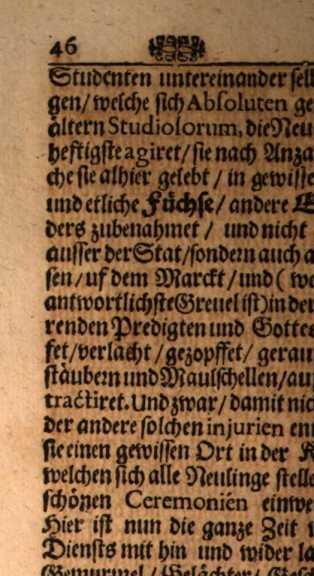 46
Studenten untereinander selb
gen/ welche sich Absoluten ge
ältern Studiosorum, die Neu
hefftigste agiret/ sie nach Anza
che sie alhier gelebt / in gewisse
und etliche Füchse/ andere
ders zubenahmet / und nicht
ausser der Stat/sondern auch a
sen/ uf dem Marckt/ und ( we
antwortlichste Greuel ist) in de
renden Predigten und Gottes
fet/verlacht / gezopffet/ gerau
stäubern und Maulschellen/ au
tractiret. Und zwar/ damit nic
der andere solchen injurien en
sie einen gewissen Ort in der K
welchen sich alle Neulinge stelle
schönen Ceremonién einwe
Hier ist nun die ganze Zeit
Diensts mit hin und wider la
Gemurmel / Gelächter/